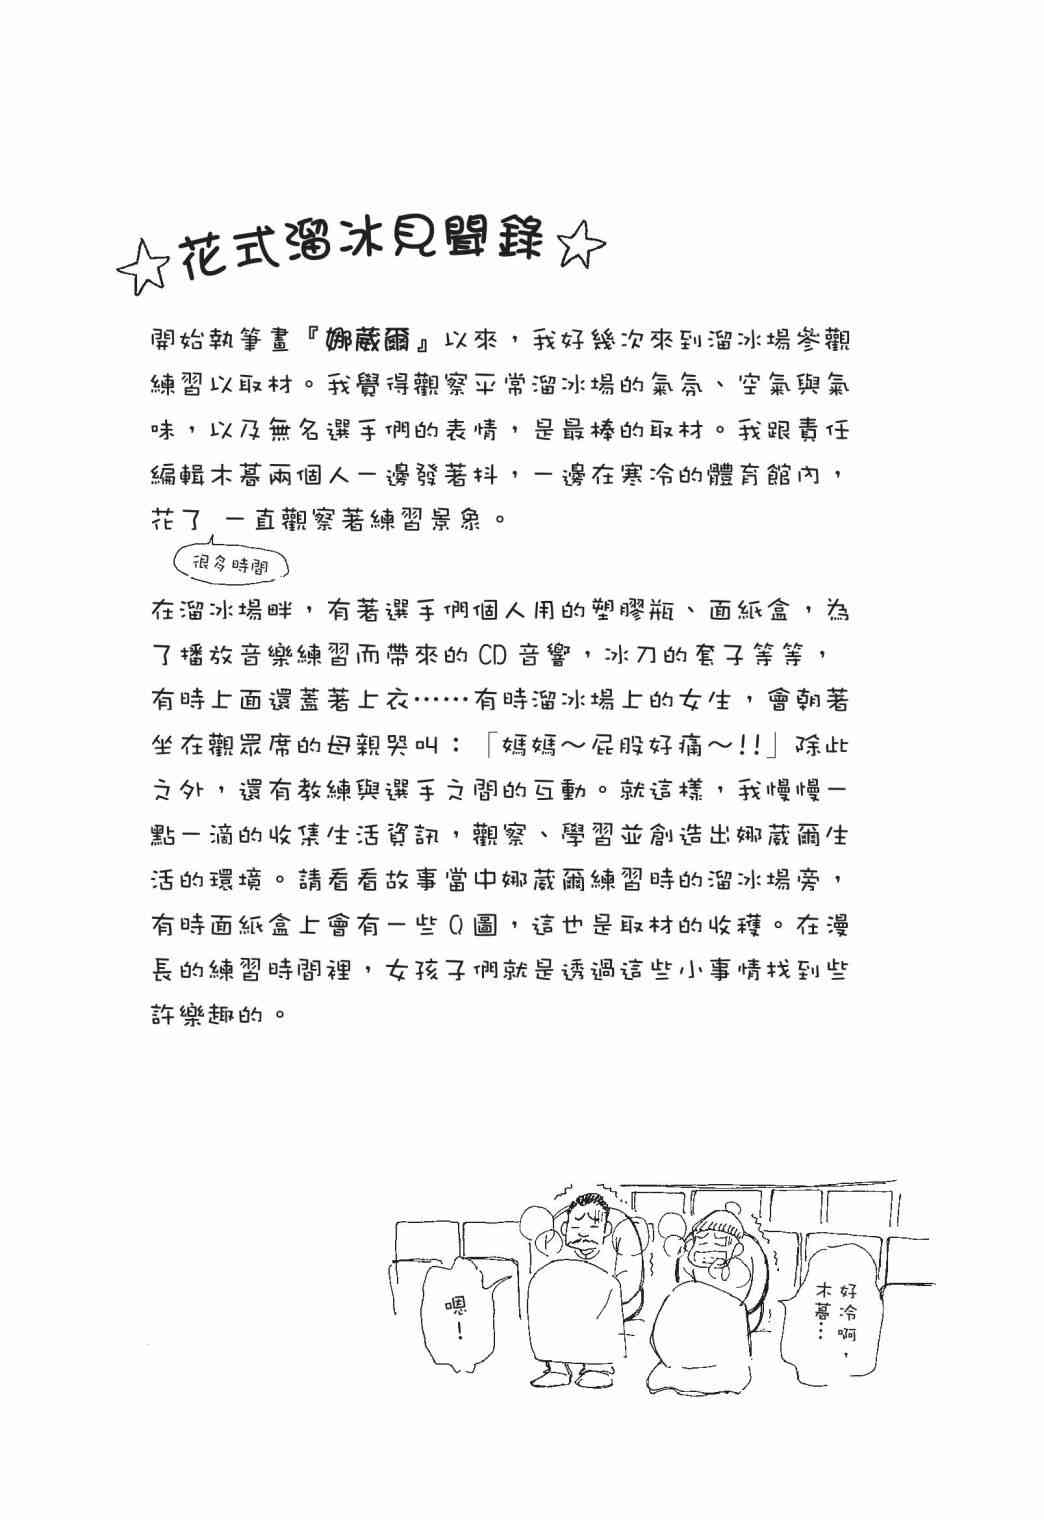 花式溜冰見聞錄
開始執筆畫『娜葳爾』以來，我好幾次來到溜冰場參觀
練習以取材。我覺得觀察平常溜冰場的氣氛、空氣與氣
味，以及無名選手們的表情，是最棒的取材。我跟責任
編輯木暮兩個人一邊發著抖，一邊在寒冷的體育館內，
花了 一直觀察著練習景象。
很多時間
在溜冰場畔，有著選手們個人用的塑膠瓶、面紙盒，為
了播放音樂練習而帶來的CD音響，冰刀的套子等等，
有時上面還蓋著上衣……有時溜冰場上的女生，會朝著
坐在觀眾席的母親哭叫：「媽媽～屁股好痛～!!」除此
之外，還有教練與選手之間的互動。就這樣，我慢慢一
點一滴的收集生活資訊，觀察、學習並創造出娜葳爾生
活的環境。請看看故事當中娜葳爾練習時的溜冰場旁，
有時面紙盒上會有一些Q圖，這也是取材的收穫。在漫
長的練習時間裡，女孩子們就是透過這些小事情找到些
許樂趣的。
好冷啊，
木暮…
嗯！